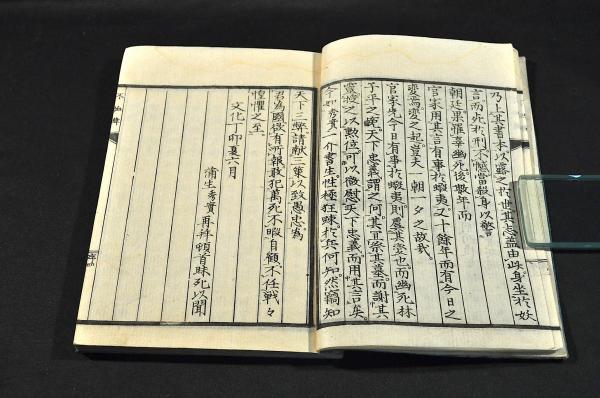 乃上其書本以露之於世其志蓋由此身坐於妖
言而死於刑不憾當殺身以警
朝廷果羅辜幽死後數年而
官家用其言有事於蝦夷又十餘年而有今日之
變焉。變之起。豈夫一朝一夕之故哉。
官家先今日有事於蝦夷則其當也而幽死林
子平之寃。天下忠義。謂之何。其宜祭其墓。而謝其
靈。授之以勲位。可以慰天下忠義。而用其言矣。
今如秀實一介書生。性極狂於兵何知。然竊知
天下三弊。請献三策。以致愚忠。為
君為國有所報。敢犯萬死。不暇自顧。不任戰々
惶懼之至。
文化丁卯夏六月
蒲生秀實再拜頓首昧死以聞
不恤緯